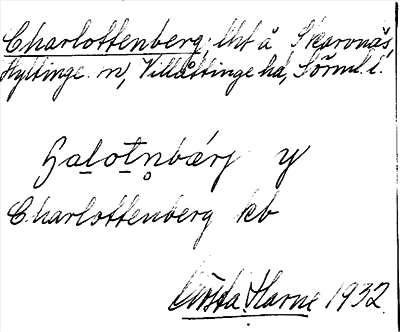 Charlottenberg, lht å Skarvnäs,
Hyltinge sn, Villåttinge hd, Sörml. l.
Salotnbärj y
Charlottenberg kb
Gösta Harne 1932.